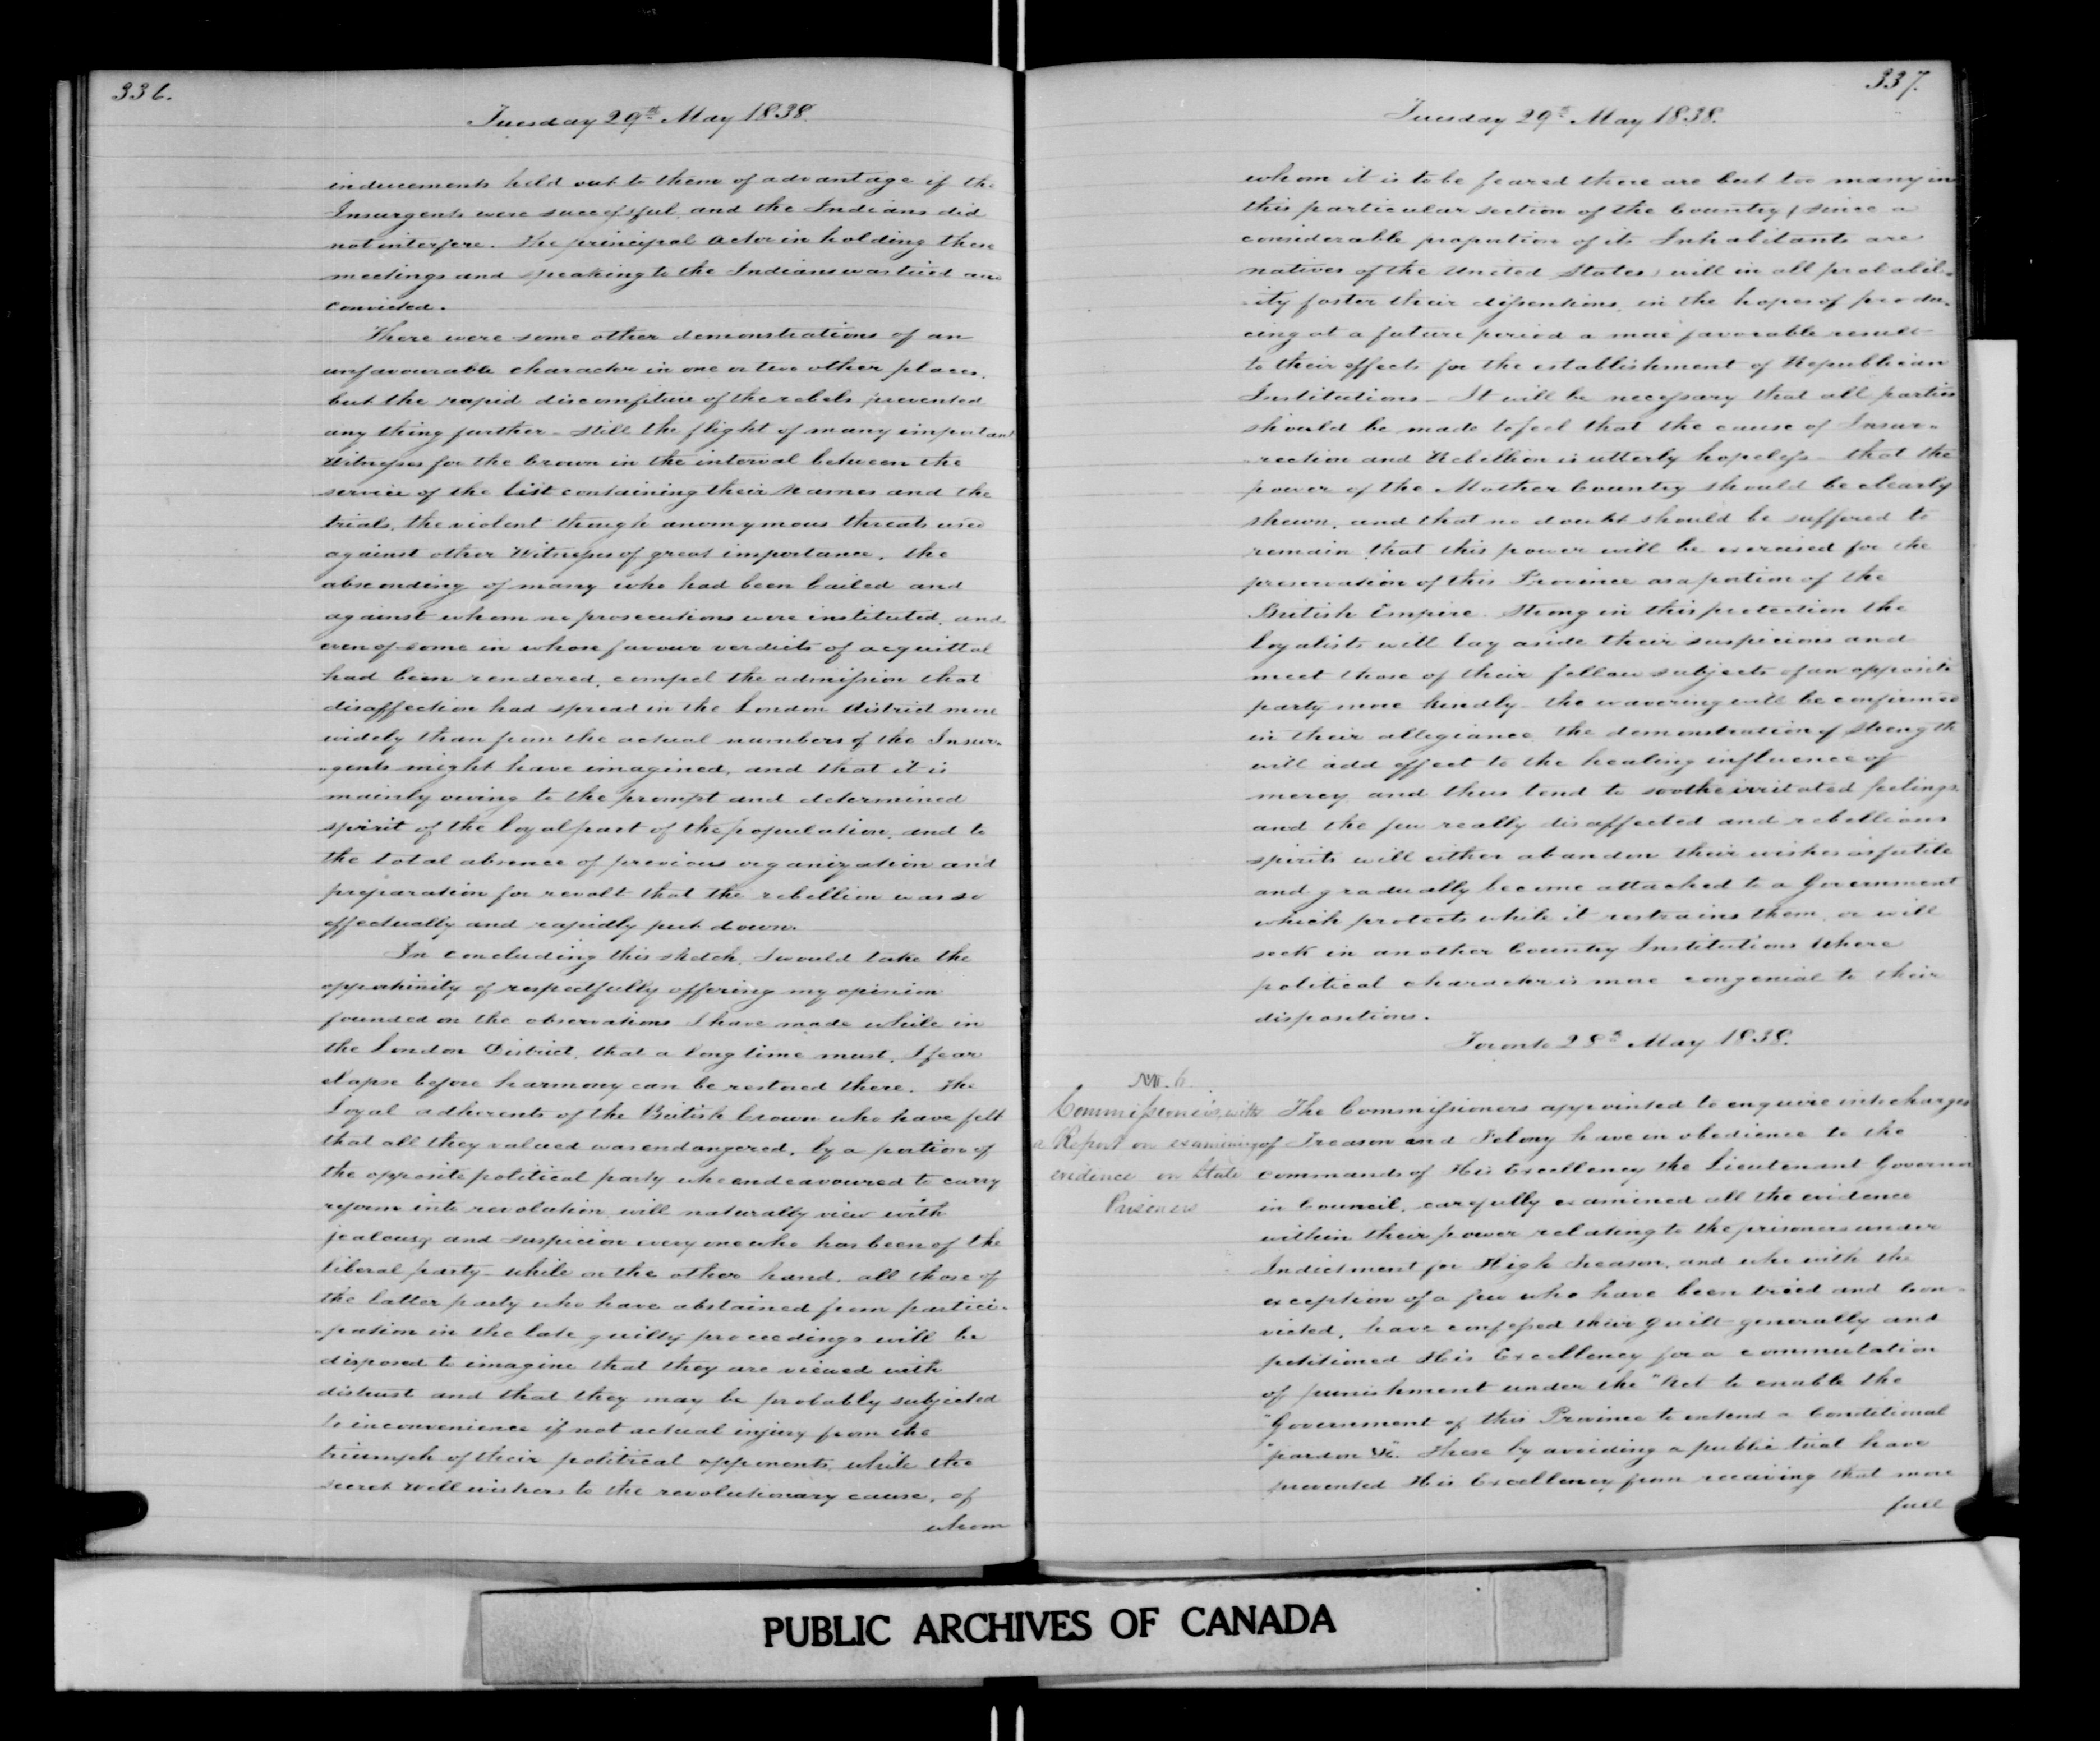 336.
Tuesday 29th May 1838.
inducements held out to them of advantage if the
Insurgents were successful, and the Indians did
not interfere. The principal Actor in holding these
meetings and speaking to the Indians was tried and
convicted.
There were some other demonstrations of an
unfavourable character in one or two other places,
but the rapid discomfiture of the rebels prevented
any thing further - Still the flight of many important
Witnesses for the Crown in the interval between the
service of the list containing their names and the
trials, the violent though anonymous threats used
against other Witnesses of great importance, the
absconding of many who had been bailed and
against whom no prosecutions were instituted, and
even of some in whose favour verdicts of acquittal
had been rendered, compel the admission that
disaffection had spread in the London District more
widely than from the actual numbers of the Insur-
-gents might have imagined, and that it is
mainly owing to the prompt and determined
spirit of the loyal part of the population, and to
the total absence of previous organization and
preparation for revolt that the rebellion was so
effectually and rapidly put down.
In concluding this sketch, I would take the
opportunity of respectfully offering my opinion
founded on the observations I have made while in
the London District, that a long time must, I fear
elapse before harmony can be restored there. The
Loyal adherents of the British Crown who have felt
that all they valued was endangered, by a portion of
the opposite political party who endeavoured to carry
reform into revolution will naturally view with
jealousy and suspicion every one who has been of the
liberal party - while on the other hand, all those of
the latter party who have abstained from partici-
-pation in the late guilty proceedings will be
disposed to imagine that they are viewed with
distrust and that they may be probably subjected
to inconvenience if not actual injury from the
triumph of their political opponents, while the
secret well wishers to the revolutionary cause, of
whom
337.
Tuesday 29th May 1838.
whom it is to be feared there are but too many in
this particular section of the Country (since a
considerable proportion of its Inhabitants are
natives of the United States) will in all probabil-
-ity foster their dissentions, in the hopes of produ-
cing at a future period a more favorable result
to their effects for the establishment of Republican
Institutions - It will be necessary that all parties
should be made to feel that the cause of Insur-
-rection and Rebellion is utterly hopeless - that the
power of the Mother Country should be clearly
shewn, and that no doubt should be suffered to
remain that this power will be exercised for the
preservation of this Province as a portion of the
British Empire. Strong in this protection the
loyalists will lay aside their suspicions and
meet those of their fellow subjects of an opposite
party more kindly - the wavering will be confirmed
in their allegiance, the demonstration of strength
will add effect to the healing influence of
mercy and thus tend to soothe irritated feelings,
and the few really disaffected and rebellious
spirits will either abandon their wishes as futile
and gradually become attached to a Government
which protects while it restrains them, or will
seek in another Country Institutions where
political character is more congenial to their
dispositions.
Toronto 28th May 1838.
No. 6.
Commissioners, with
a Report on examining
evidence on State
Prisoners
The Commissioners appointed to enquire into charges
of Treason and Felony have in obedience to the
commands of His Excellency the Lieutenant Governor
in Council, carefully examined all the evidence
within their power relating to the prisoners under
Indictment for High Treason, and who with the
exception of a few who have been tried and Con-
victed, have confessed their guilt generally and
petitioned His Excellency for a commutation
of punishment under the "Act to enable the
"Government of this Province to extend a Conditional
"pardon &c". These by avoiding a public trial have
prevented His Excellency from receiving that more
full
PUBLIC ARCHIVES OF CANADA